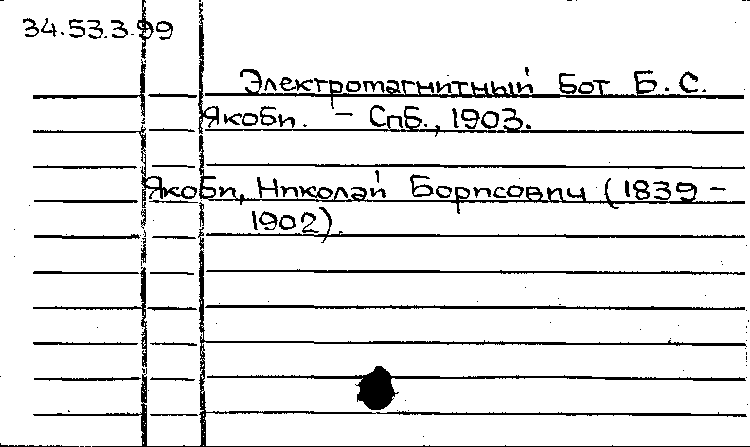 34.53.3.99
Электромагнитный бот Б. С.
Якоби. - Спб., 1903.
Якоби, Николай Борисович (1839 -
1902).